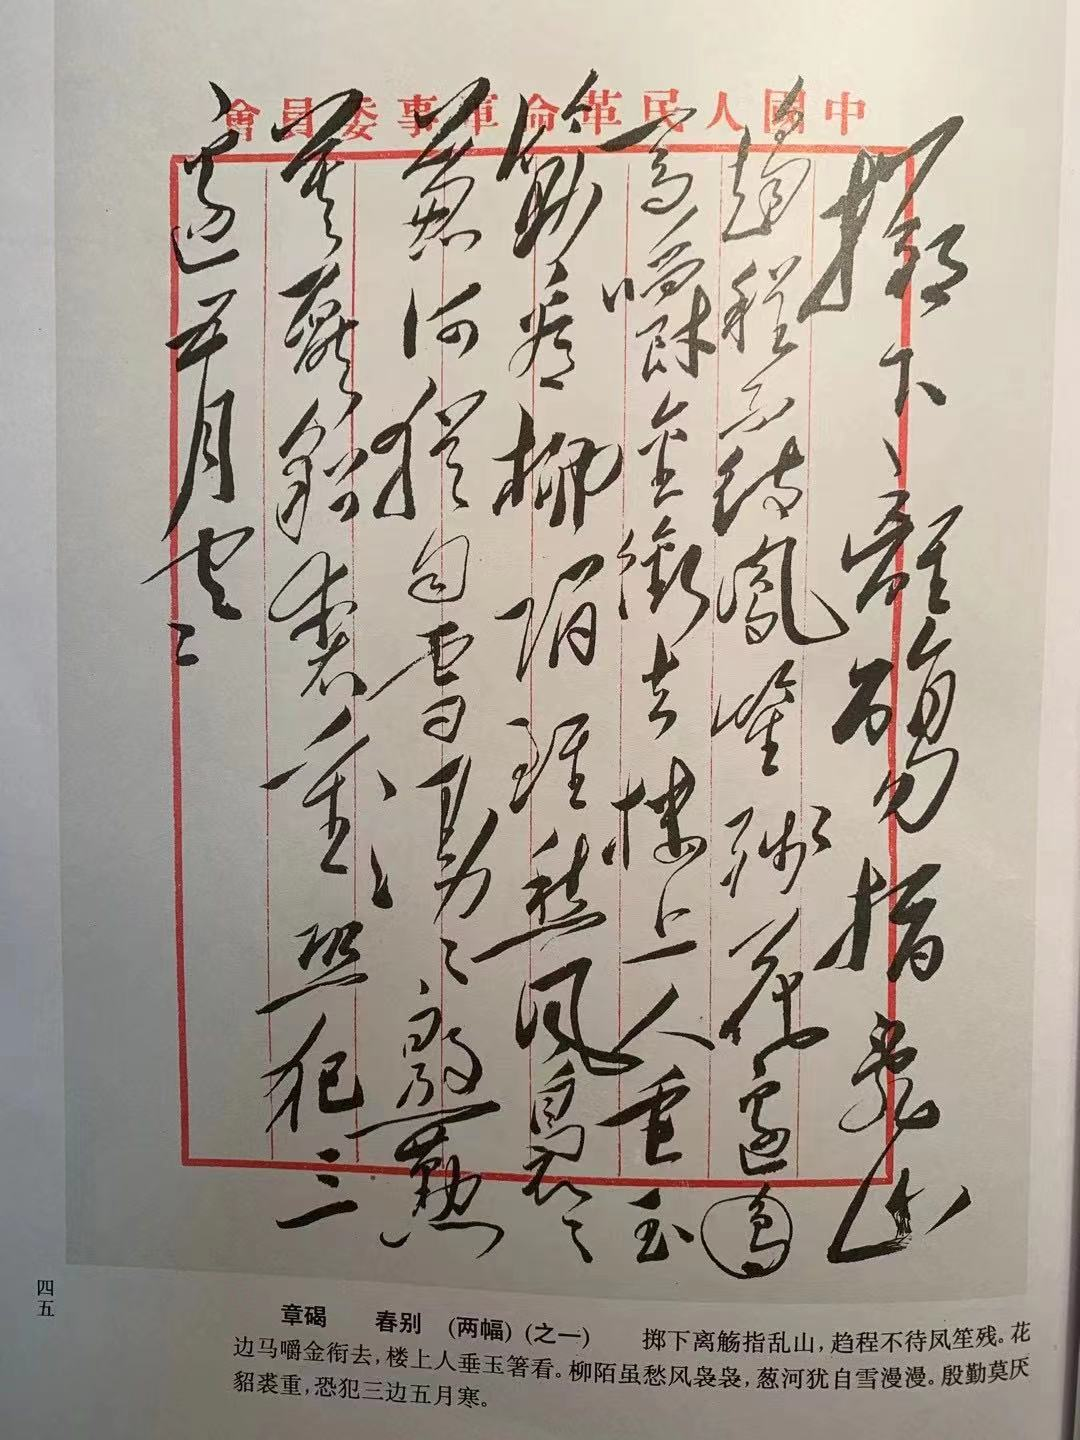 中國人民革命軍事委員會
擲下離觴指亂山
趨程不待鳳笙殘花邊
馬嚼金銜去樓上人垂玉
筯看柳陌雖愁風裊々
葱河猶自雪漫々殷勤
莫厭貂裘重恐犯三
邊五月寒
四五
章碣 春别 (两幅) (之一) 掷下离觞指乱山，趋程不待凤笙残。花
边马嚼金衔去，楼上人垂玉箸看。柳陌虽愁风袅袅，葱河犹自雪漫漫。殷勤莫厌
貂裘重，恐犯三边五月寒。